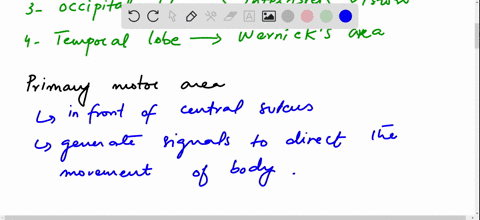 3- occipital
4- Temporal lobe → Wernick's area
Primary motor area
↳ in front of central sulcus
↳ generate signals to direct the
movement of body .